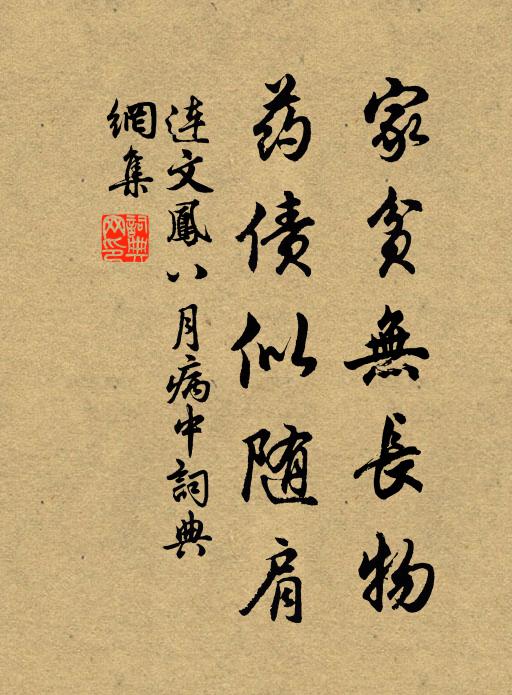 家貧無長物
药债似随肩
连文鳳八月病中詞典
網集
詞典網印